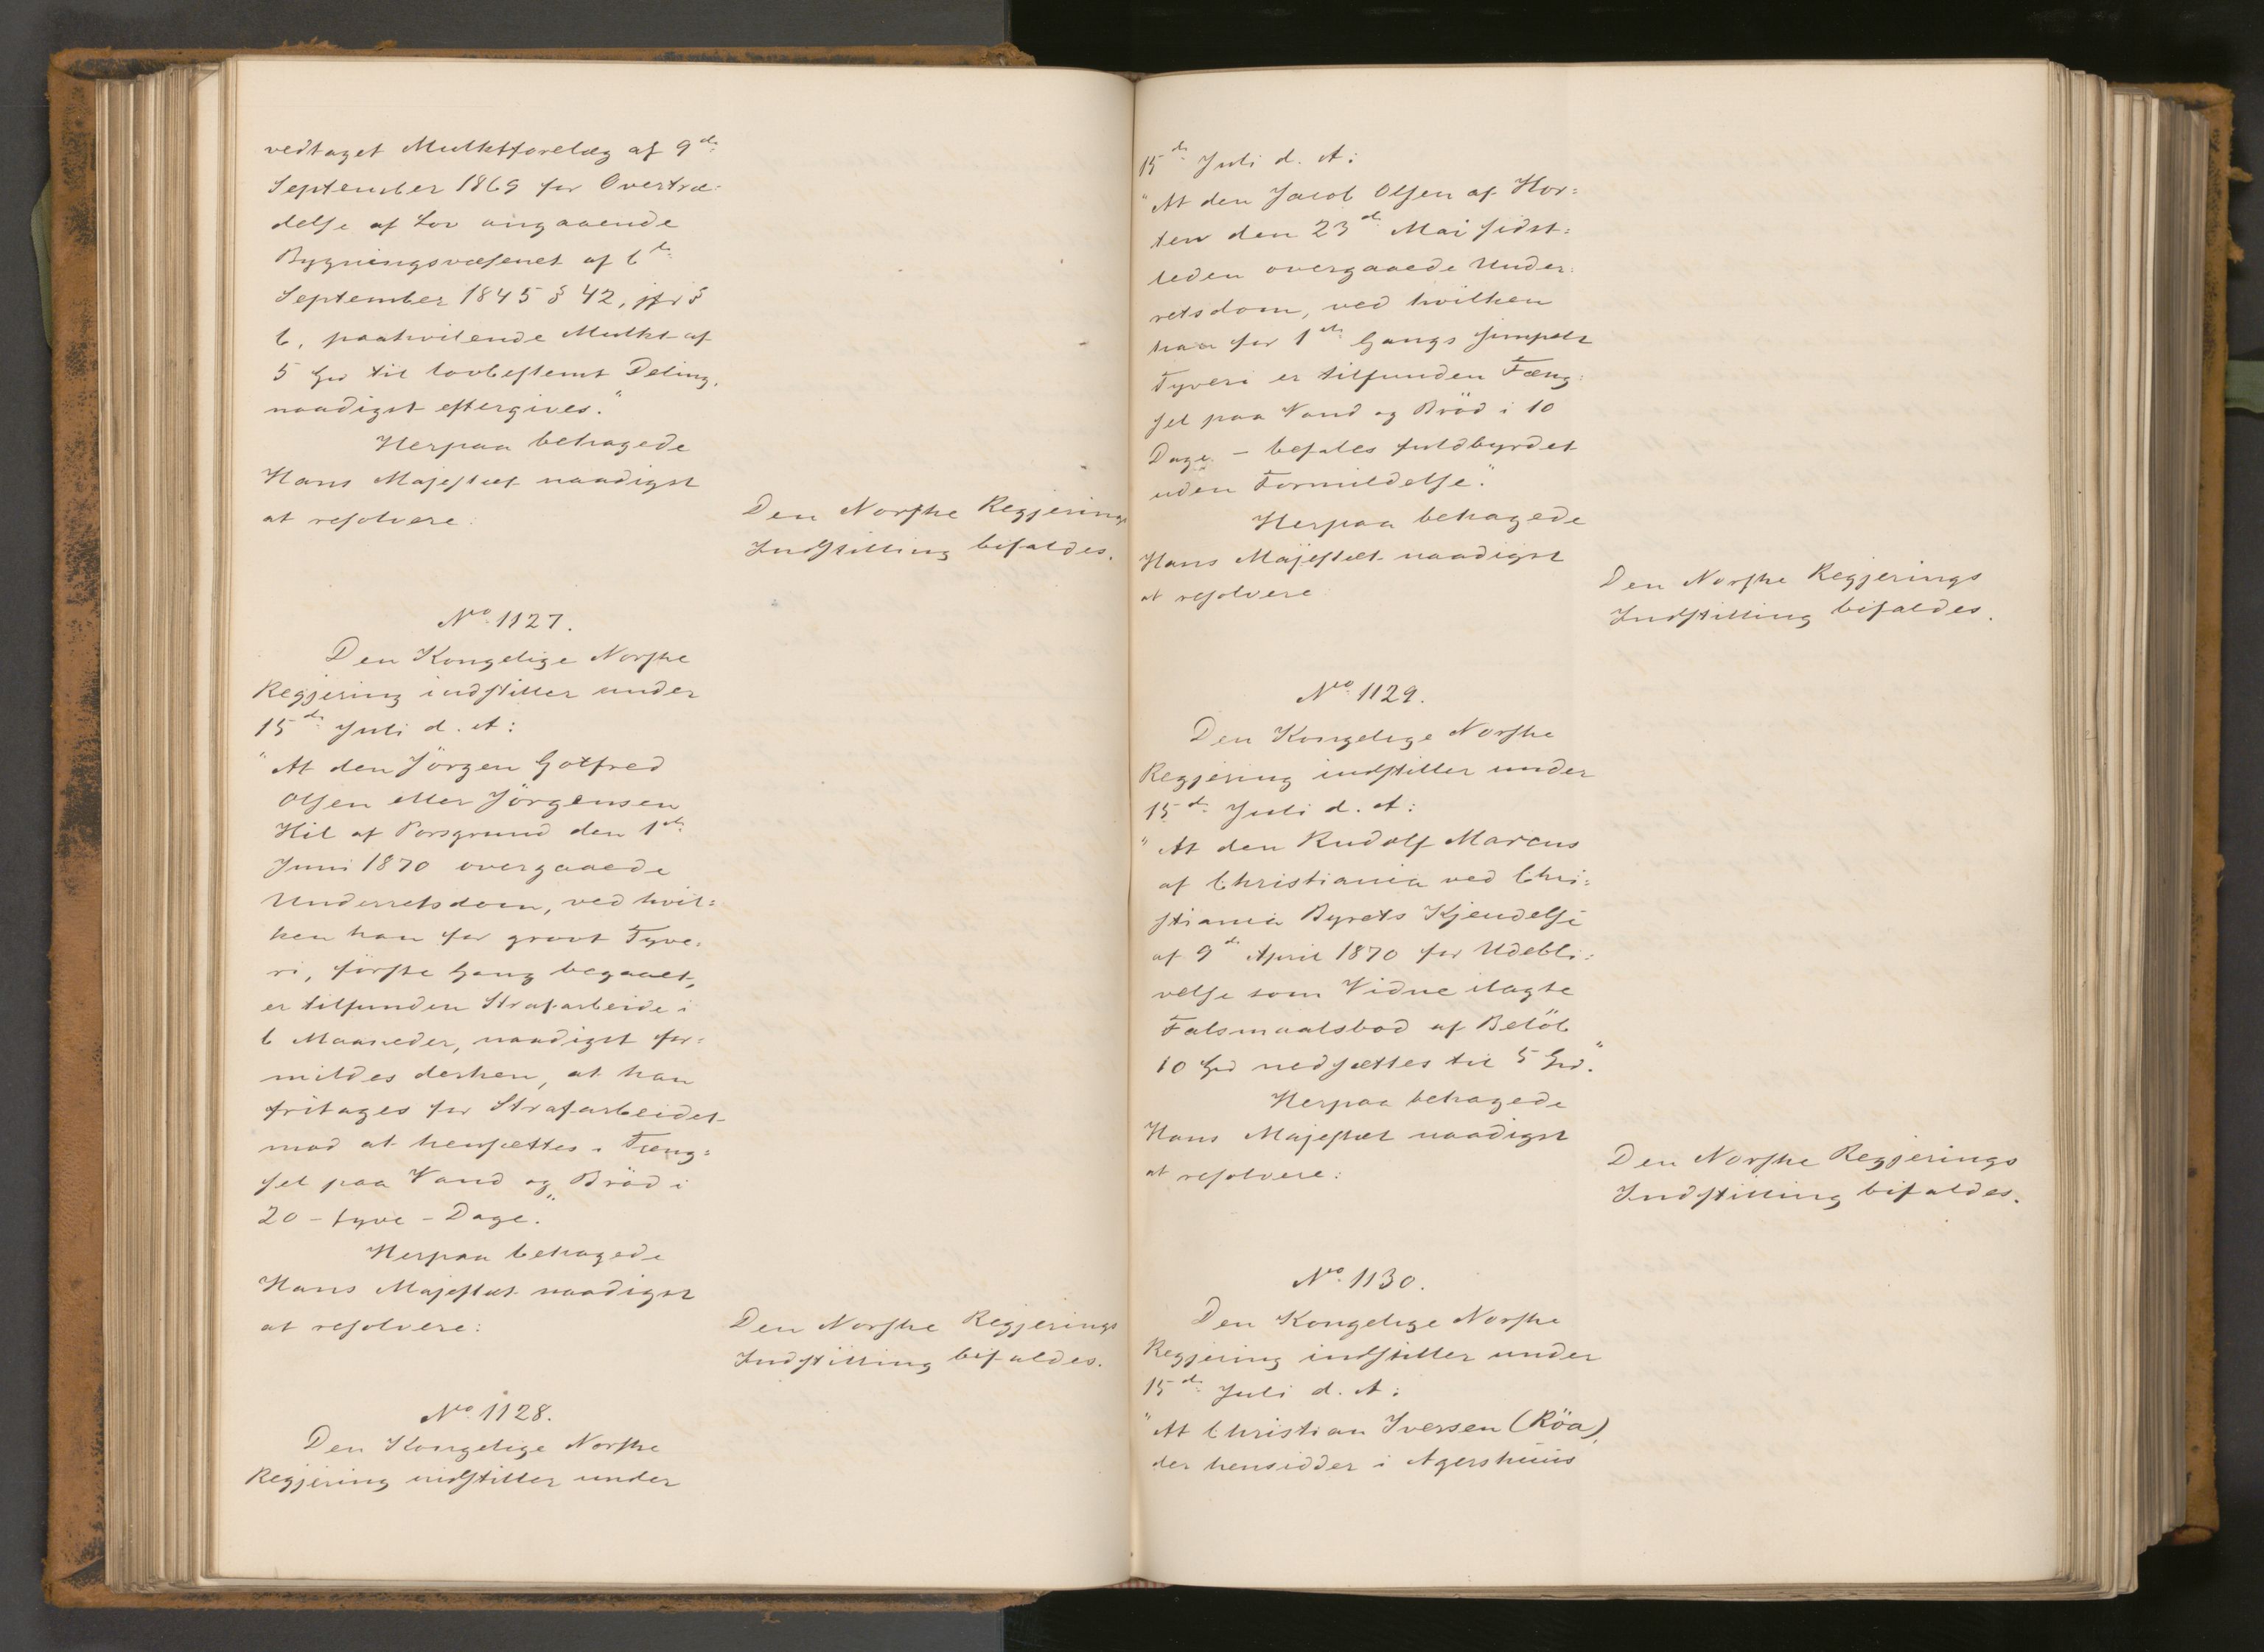 vedtaget Mulktforelæg af 9de
September 1869 for Overtræ=
delse af Lov angaaende
Bygningsvæsenet af 6te
September 1845 § 42, jfr §
6, paahvilende Mulkt af
5 Spd til lovbestemt Deling,
naadigst eftergives."
Herpaa behagede
Hans Majestæt naadigst
at resolvere:
Den Norske Regjerings
Indstilling bifaldes.
No. 1127.
Den Kongelige Norske
Regjering indstiller under
15de Juli d. A:
"At den Jörgen Gotfred
Olsen eller Jörgensen
Hil af Porsgrund den 1ste
Juni 1870 overgaaede
Underretsdom, ved hvil=
ken han for grovt Tyve=
ri, förste Gang begaaet,
er tilfunden Strafarbeide i
6 Maaneder, naadigst for=
mildes derhen, at han
fritages for Strafarbeidet
mod at hensættes i Fæng=
sel paa Vand og Bröd i
20 - tyve - Dage."
Herpaa behagede
Hans Majestæt naadigst
at resolvere:
Den Norske Regjerings
Indstilling bifaldes.
No. 1128.
Den Kongelige Norske
Regjering indstiller under
15de Juli d. A:
"At den Jacob Olsen af Hor=
ten den 23de Mai sidst=
leden overgaaede Under=
retsdom, ved hvilken
han for 1ste Gangs simpelt
Tyveri er tilfunden Fæng=
sel paa Vand og Bröd i 10
Dage. - befales fuldbyrdet
uden Formildelse."
Herpaa behagede
Hans Majestæt naadigst
at resolvere:
Den Norske Regjerings
Indstilling bifaldes.
No. 1129.
Den Kongelige Norske
Regjering indstiller under
15de Juli d. A:
"At den Rudolf Marcus
af Christiania ved Chri=
stiania Byrets Kjendelse
af 9de April 1870 for Udebli=
velse som Vidne ilagte
Falsmaalsbod af Belöb
10 Spd nedsættes til 5 Spd."
Herpaa behagede
Hans Majestæt naadigst
at resolvere:
Den Norske Regjerings
Indstilling bifaldes.
No. 1130.
Den Kongelige Norske
Regjering indstiller under
15de Juli d. A:
"At Christian Iversen (Röa),
der hensidder i Agershuus